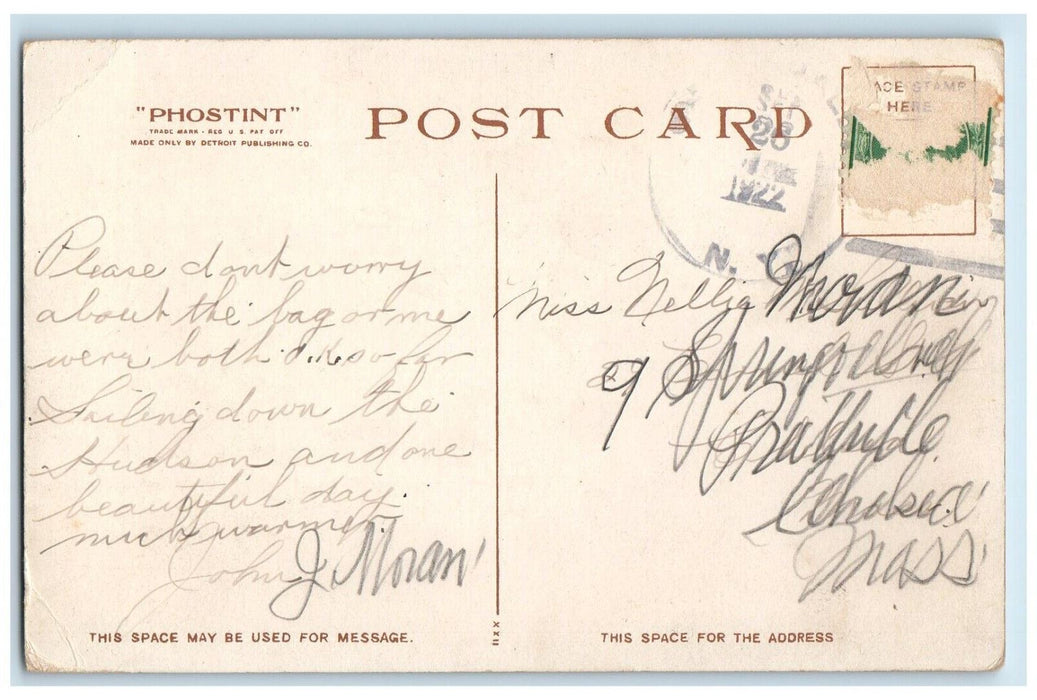 "PHOSTINT"
TRADE MARK - REG U. S. PAT OFF
MADE ONLY BY DETROIT PUBLISHING CO.
POST CARD
ACE STAMP
HERE
26
1922
N. Y.
Please dont worry
about the bag or me
were both O.K. so far
Sailing down the
Hudson and one
beautiful day.
much warmer.
John J. Moran
Miss Nellie Moran
9 Springvale
Prattville
Chelsea
Mass
THIS SPACE MAY BE USED FOR MESSAGE.
XXII
THIS SPACE FOR THE ADDRESS